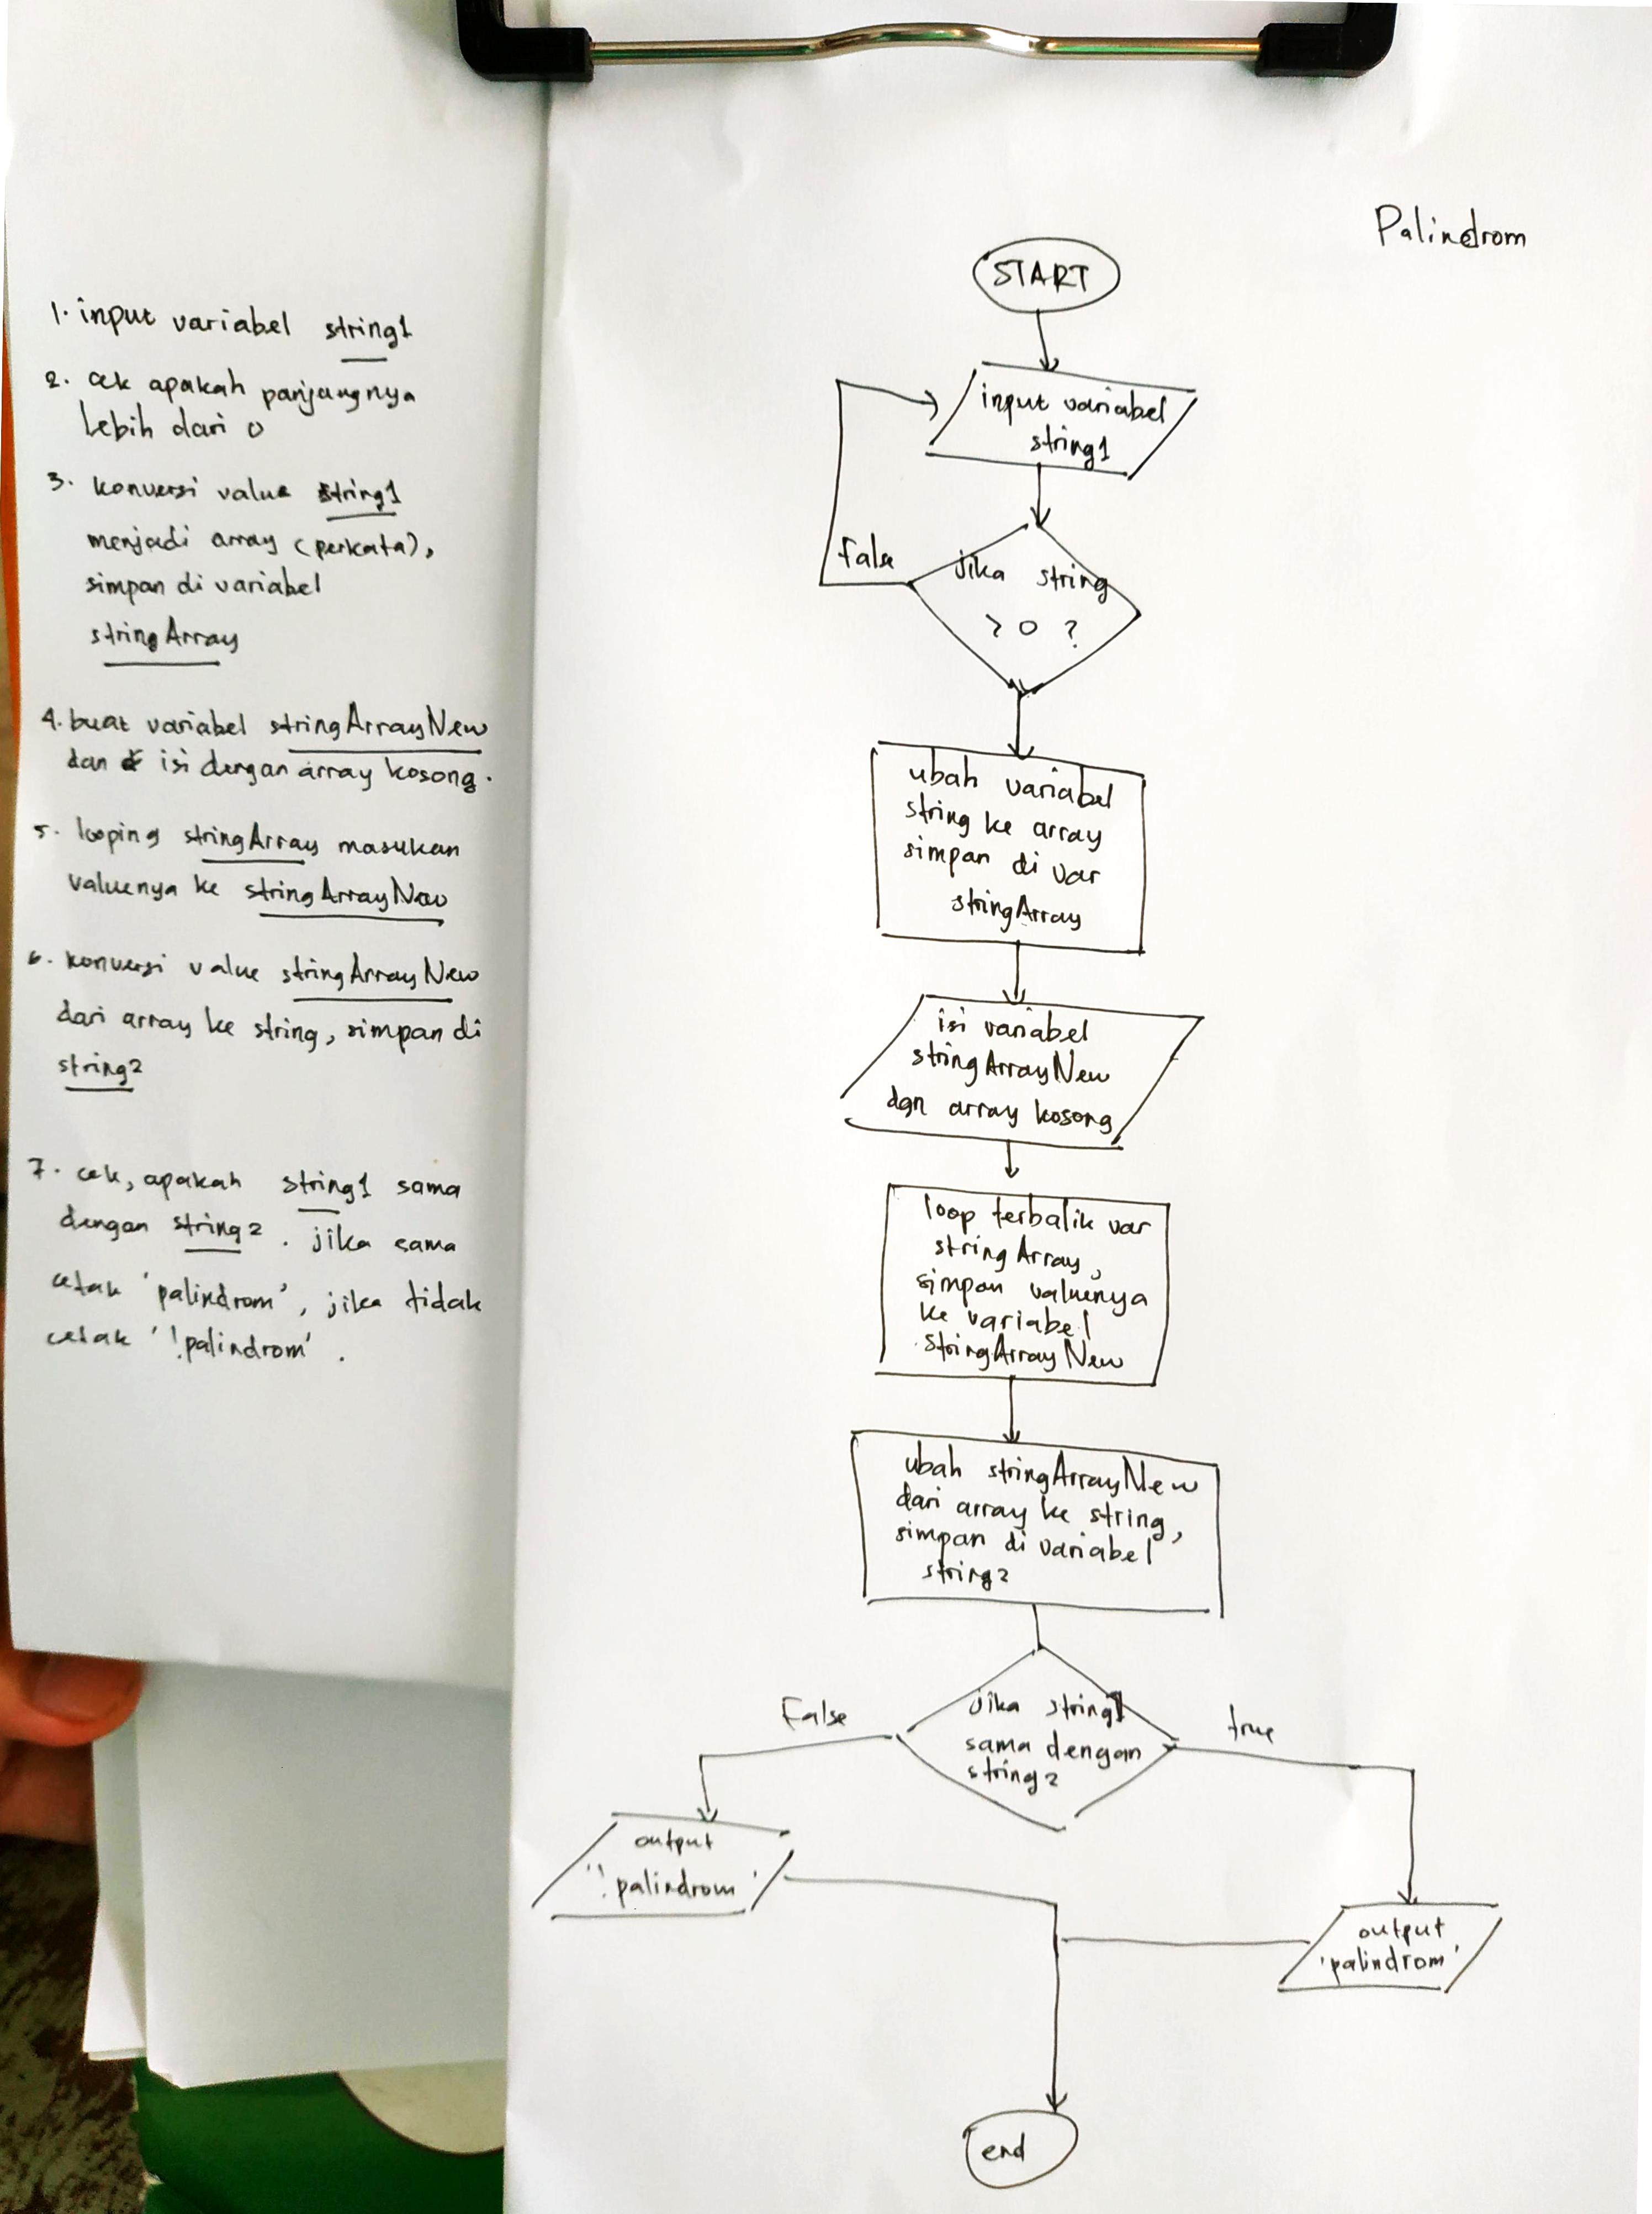 1. input variabel string1
2. cek apakah panjangnya
lebih dari 0
3. konversi value string1
menjadi array (perkata),
simpan di variabel
stringArray
4. buat variabel stringArrayNew
dan isi dengan array kosong.
5. looping stringArray masukan
valuenya ke stringArrayNew
6. konversi value stringArrayNew
dari array ke string, simpan di
string2
7. cek, apakah string1 sama
dengan string2. jika sama
cetak 'palindrom', jika tidak
cetak '!palindrom'.
Palindrom
START
input variabel
string1
false
jika string
> 0 ?
ubah variabel
string ke array
simpan di var
stringArray
isi variabel
stringArrayNew
dgn array kosong
loop terbalik var
stringArray,
simpan valuenya
ke variabel
stringArrayNew
ubah stringArrayNew
dari array ke string,
simpan di variabel
string2
jika string1
sama dengan
string2
False
true
output
'!palindrom'
output
'palindrom'
end